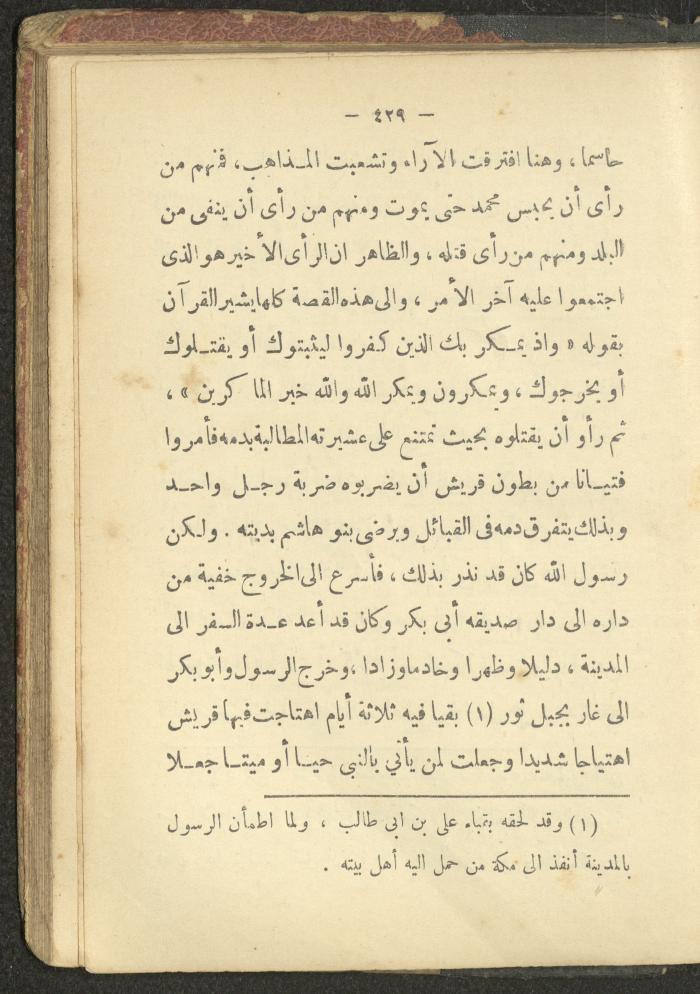 — ٤٢٩ —
حاسما ، وهنا افترقت الآراء وتشعبت المـذاهب، فمنهم من
رأى أن يحبس محمد حتى يموت ومنهم من رأى أن ينفى من
البلد ومنهم من رأى قتله ، والظاهر ان الرأى الأخير هو الذى
اجتمعوا عليه آخر الأمر ، والى هذه القصة كلها يشير القرآن
بقوله « واذ يمـكر بك الذين كفروا ليثبتوك أو يقتـلوك
أو يخرجوك ، ويمكرون ويمكر الله والله خير الماكرين » ،
ثم رأو أن يقتلوه بحيث تمتنع على عشيرته المطالبة بدمه فأمروا
فتيـانا من بطون قريش أن يضربوه ضربة رجـل واحـد
وبذلك يتفرق دمه فى القبائل ويرضى بنو هاشم بديته . ولكن
رسول الله كان قد نذر بذلك ، فأسرع الى الخروج خفية من
داره الى دار صديقه أبى بكر وكان قد أعد عـدة السفر الى
المدينة ، دليلا وظهرا وخادما وزادا ، وخرج الرسول وأبو بكر
الى غار بجبل ثور (١) بقيا فيه ثلاثة أيام اهتاجت فيها قريش
اهتياجا شديدا وجعلت لمن يأتي بالنبى حيـا أو ميتـا جعـلا
(١) وقد لحقه بقباء على بن ابى طالب ، ولما اطمأن الرسول
بالمدينة أنفذ الى مكة من حمل اليه أهل بيته .